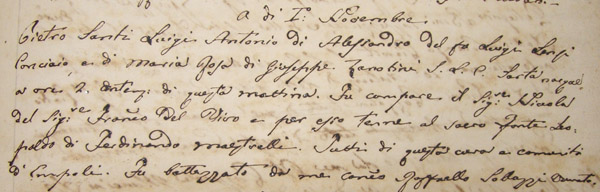 A di I.º Novembre.
Pietro Santi Luigi Antonio di Alessandro del fu Luigi
Conciaio, e di Maria Rosa di Giuseppe Zanobini S. L. C. Sarta nacque
a ore 2. antem: di questa mattina. Fu compare il Sig.re Nicola
del Sig.re Franco Del Vivo e per esso tenne al sacro Fonte Leo-
poldo di Ferdinando Maestrelli. Tutti di questa cura e comunità
d'Empoli. Fu battezzato da me Raffaello